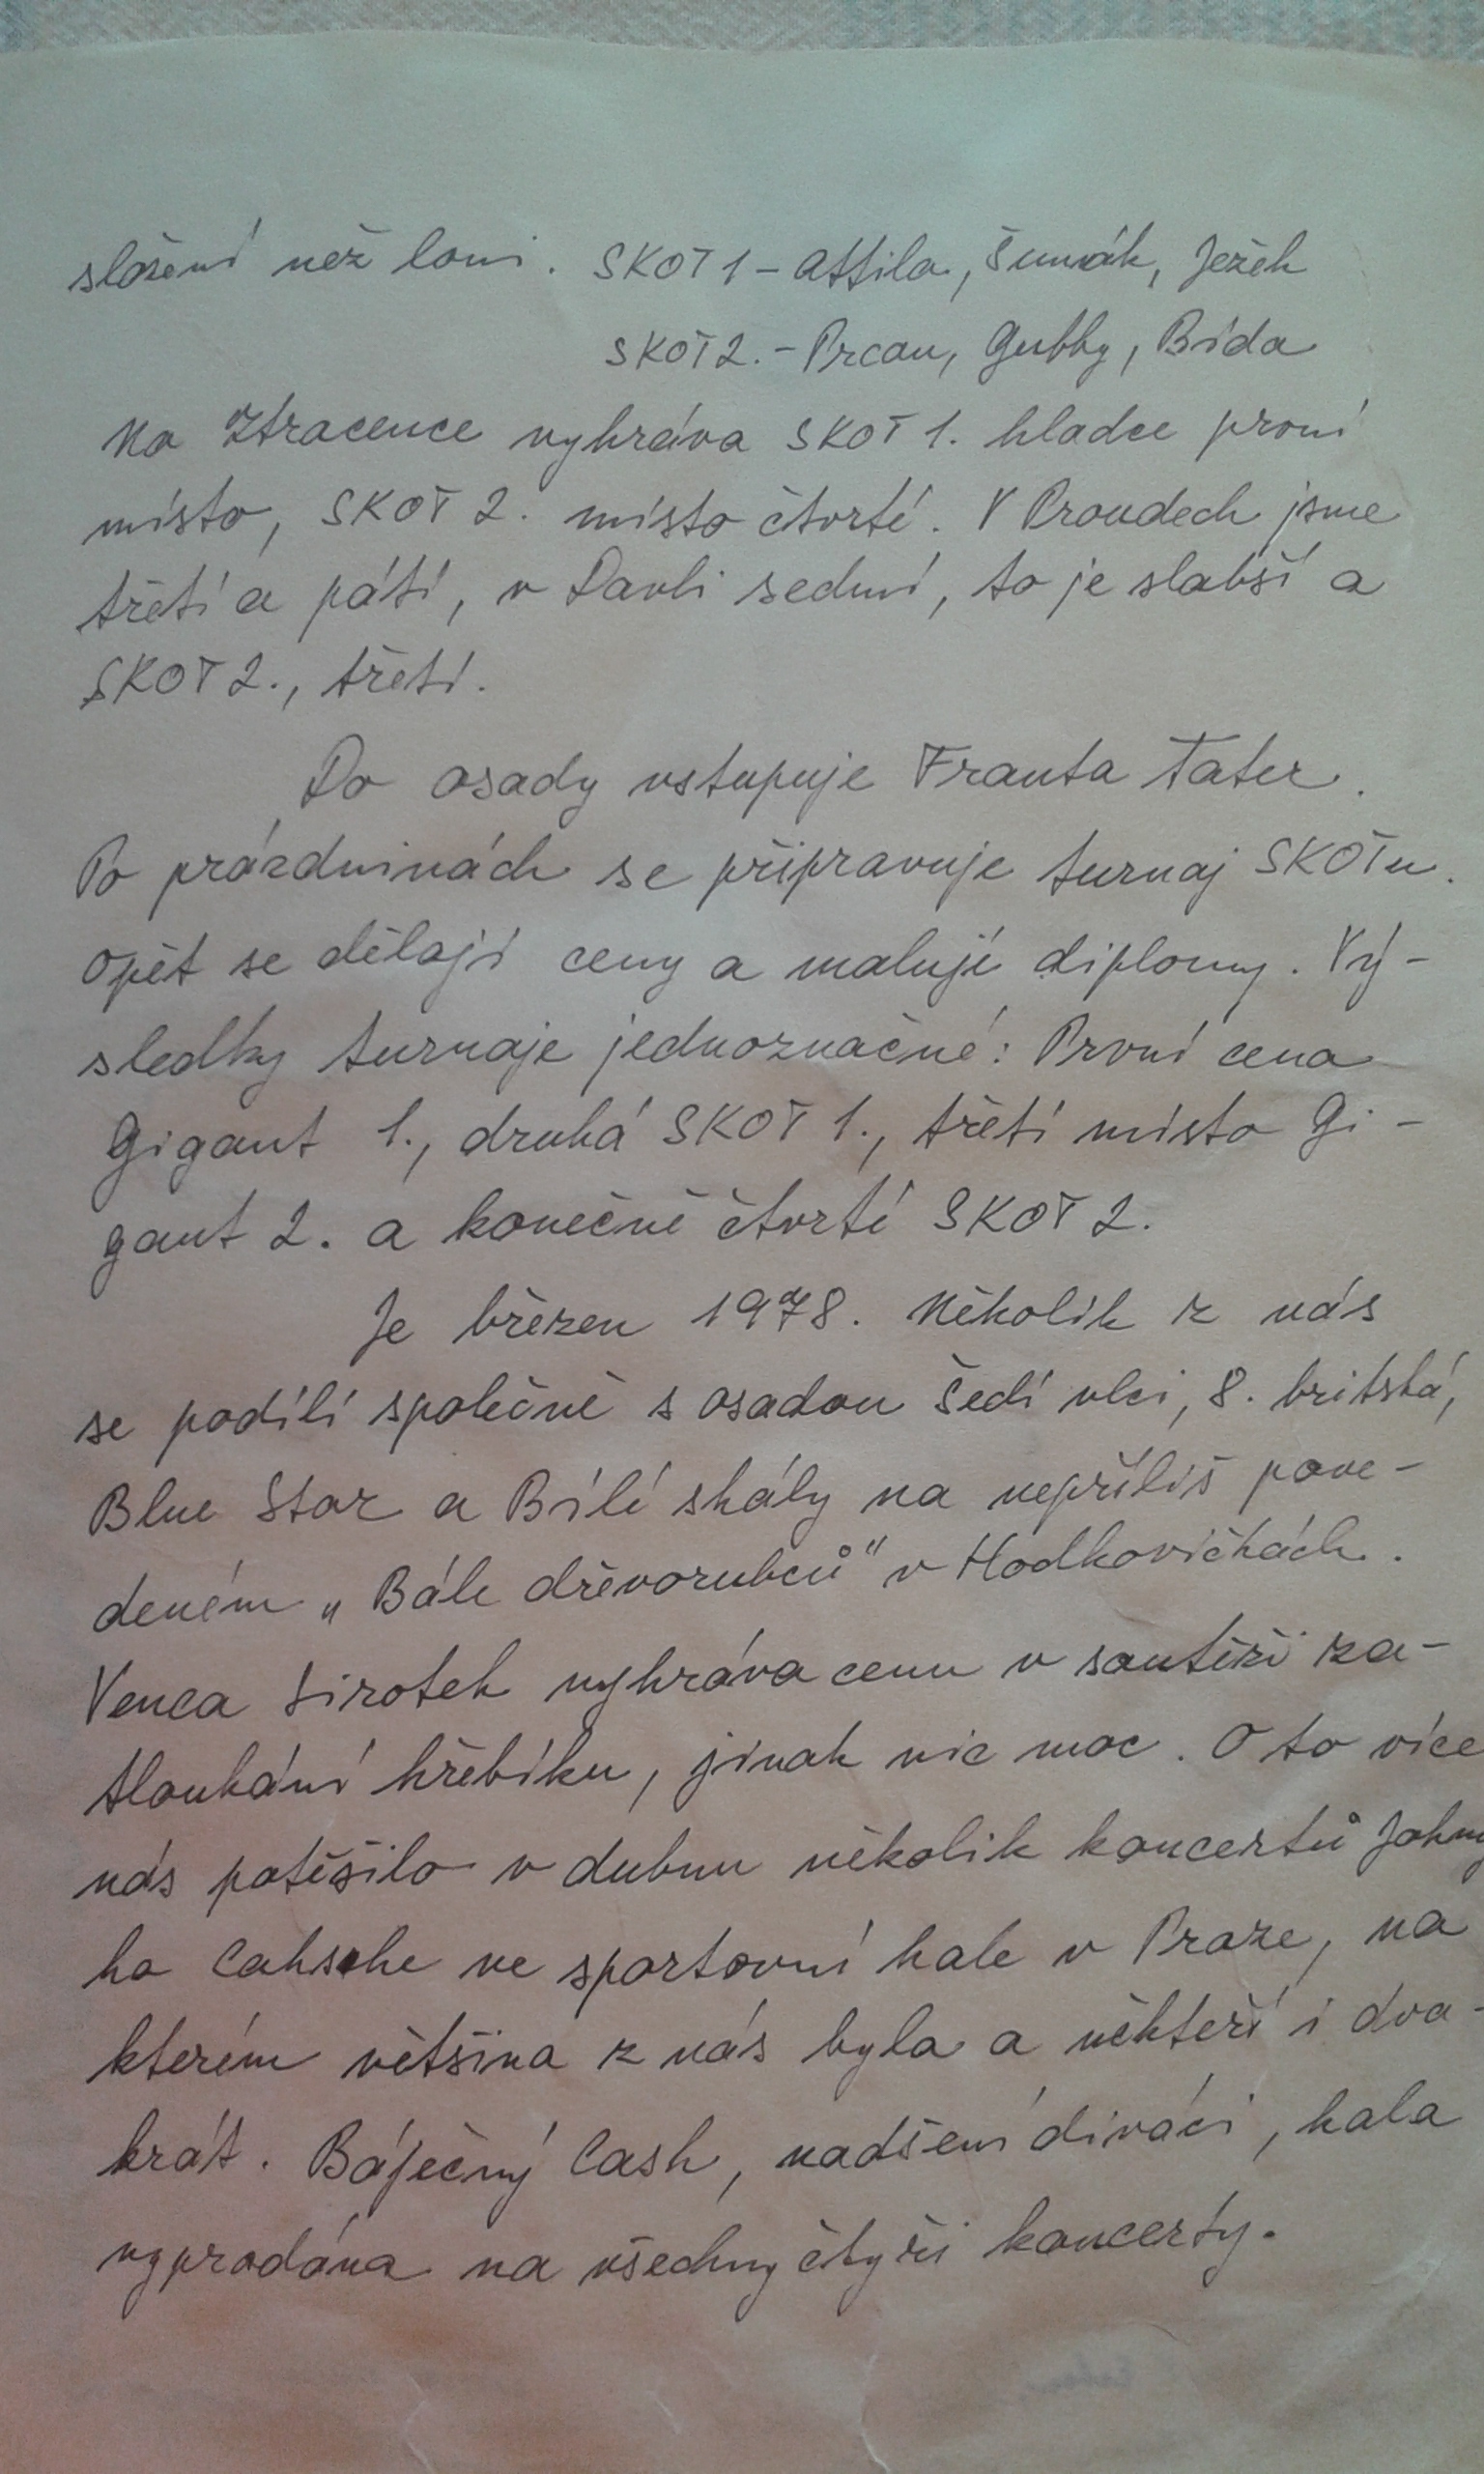 složení než loni. SKOT 1 - Attila, Šumák, Ježek
SKOT 2. - Prcan, Gubby, Bída
Na Ztracence vyhráva SKOT 1. hladce první
místo, SKOT 2. místo čtvrté. V Proudech jsme
třetí a pátí, v Davli sedmí, to je slabší a
SKOT 2., třetí.
Do osady vstupuje Franta Tater.
Po prázdninách se připravuje turnaj SKOTu.
Opět se dělají ceny a malují diplomy. Vý-
sledky turnaje jednoznačné: První cena
Gigant 1., druhá SKOT 1., třetí místo Gi-
gant 2. a konečně čtvrté SKOT 2.
Je březen 1978. Několik z nás
se podílí společně s osadou Šedí vlci, 8. britská,
Blue Star a Bílé skály na nepříliš pove-
deném „Bále dřevorubců" v Hodkovičkách.
Venca Sirotek vyhráva cenu v soutěži za-
tloukání hřebíku, jinak nic moc. O to více
nás potěšilo v dubnu několik koncertů Johny
ho Cahshe ve sportovní hale v Praze, na
kterém většina z nás byla a někteří i dva-
krát. Báječný Cash, nadšení diváci, hala
vyprodána na všechny čtyři koncerty.